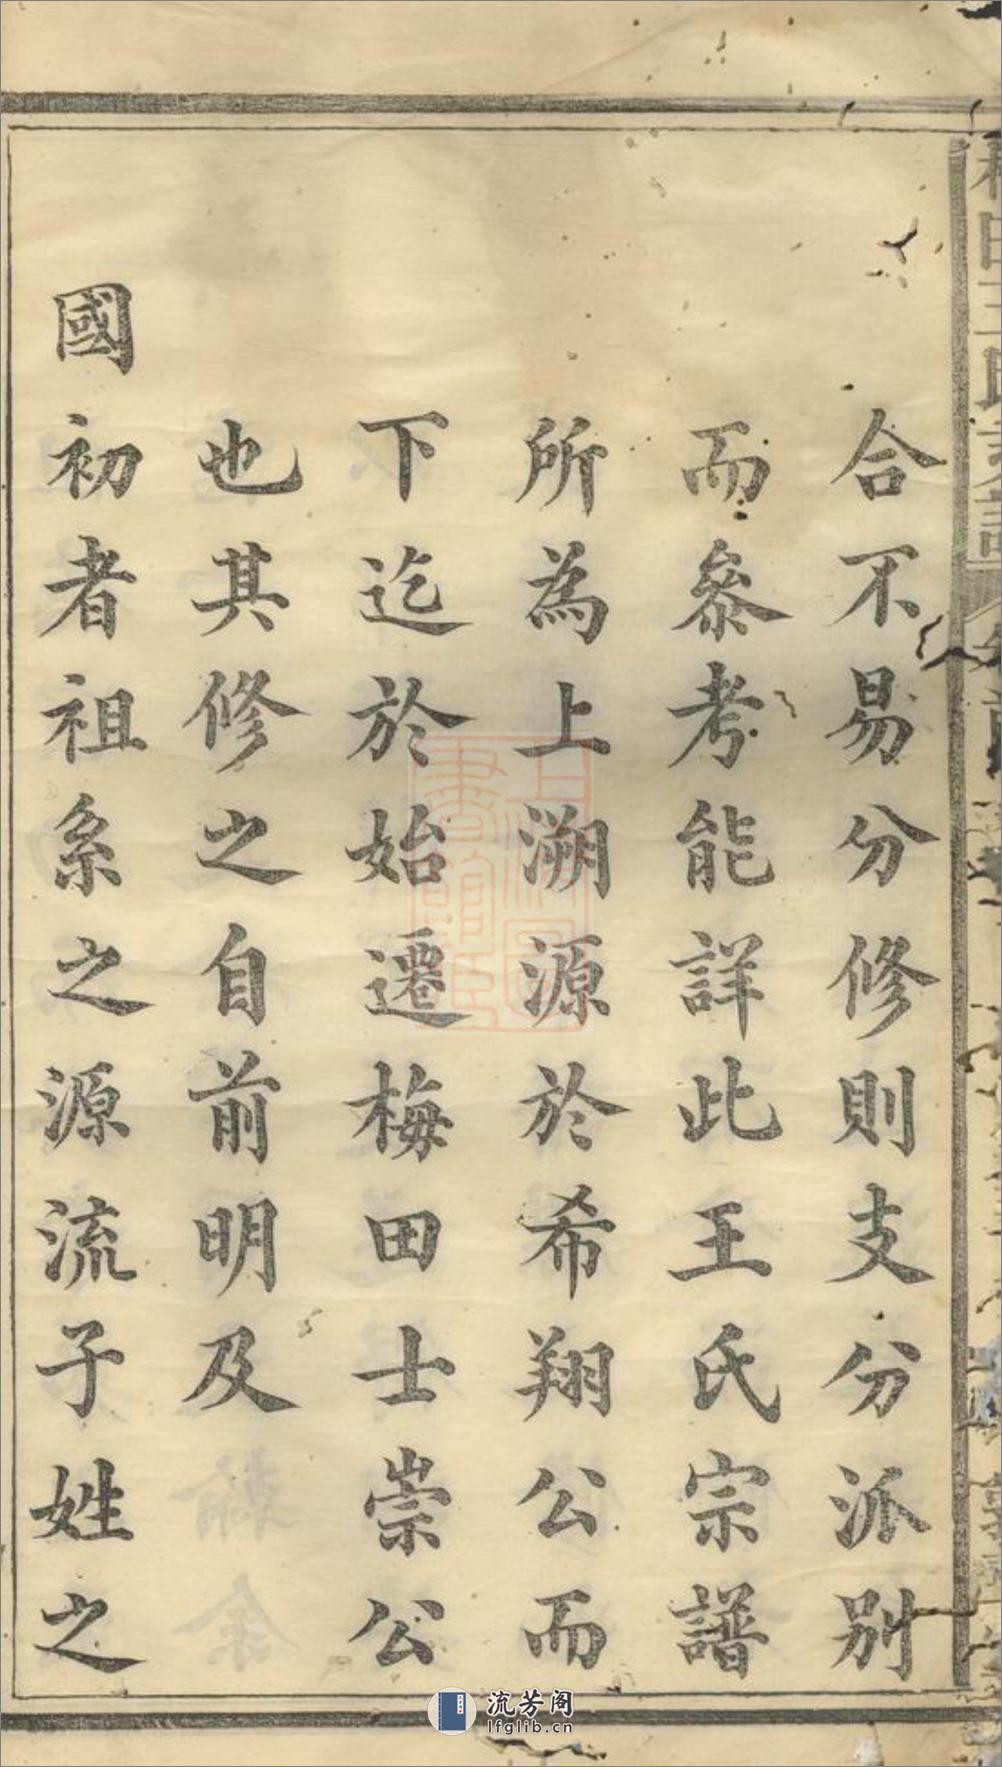 合不易分修則支分派別
而叅考能詳此王氏宗譜
所為上溯源於希翔公而
下迄於始遷梅田士崇公
也其修之自前明及
國初者祖系之源流子姓之
流芳阁
lfglib.cn